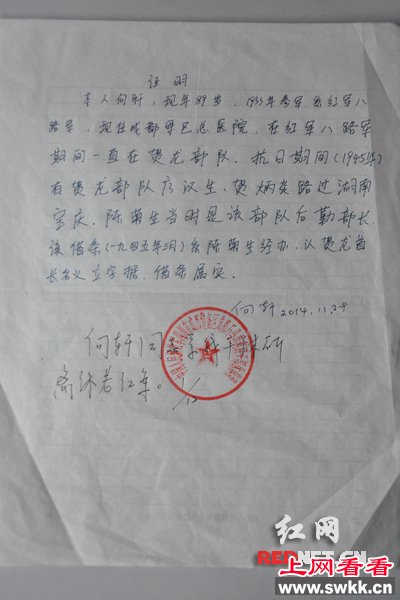 证明
本人向轩，现年89岁，1935年参军，系红军八
路军，现住成都军区总医院，在红军八路军
期间一直在贺龙部队，抗日期间（1945年）
有贺龙部队廖汉生、贺炳炎路过湖南
宝庆，陈菊生当时是该部队后勤部长，
该借条（一九四五年三月）系陈菊生经办，以贺龙首
长名义立字据，借条属实。
向轩 2014.11.29
向轩同志
离休老红军。1/12
红网
REDNET.CN
上网看看
www.swkk.com